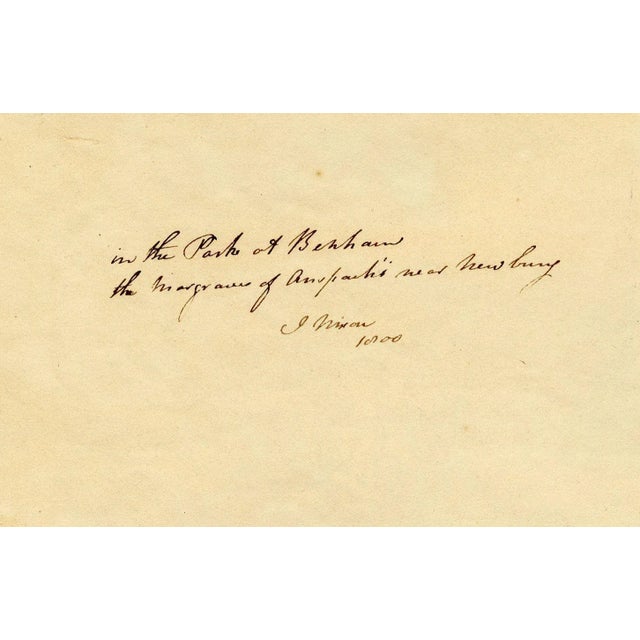 in the Park at Benham
the Margraves of Anspach's near Newbury
J Nixon
1800